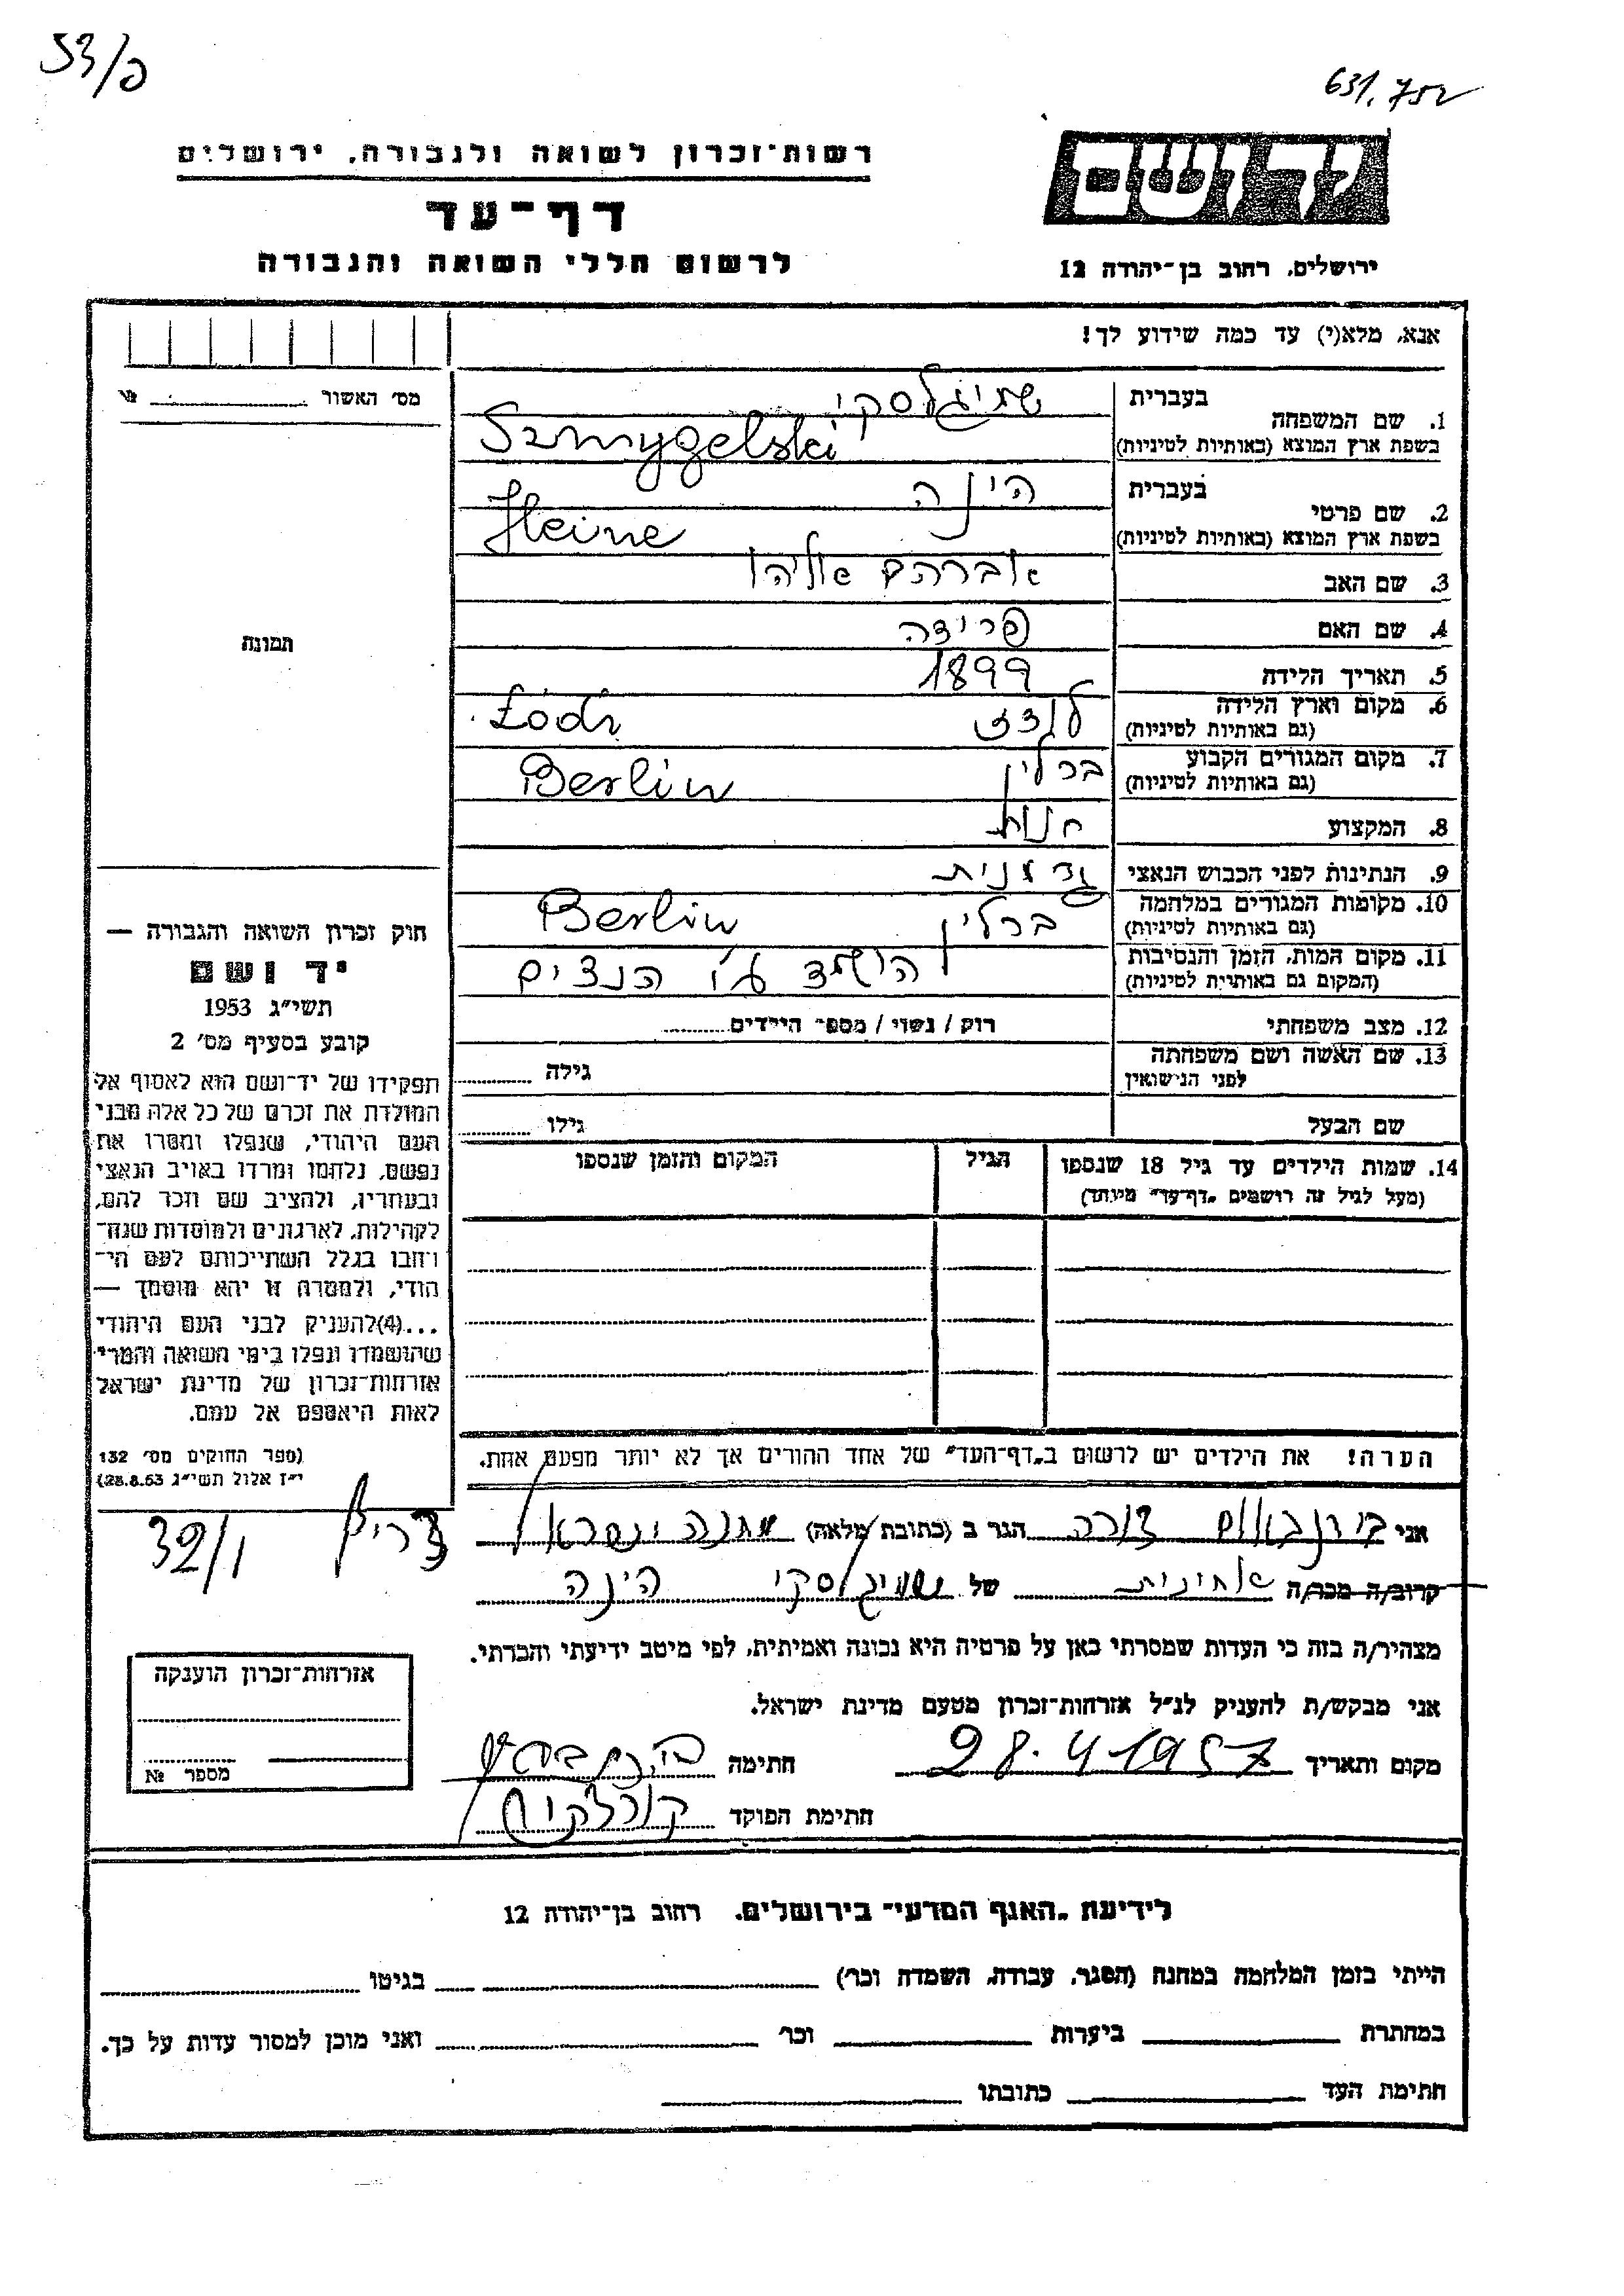 53/פ
631.752
רשות־זכרון לשואה ולגבורה, ירושלים
דף־עד
לרשום חללי השואה והגבורה
ידושם
ירושלים, רחוב בן־יהודה 12
אנא, מלא(י) עד כמה שידוע לך!
מס׳ האשור № 
1. שם המשפחה בעברית שמיגלסקי
בשפת ארץ המוצא (באותיות לטיניות) Szmygelski
2. שם פרטי בעברית הינה
בשפת ארץ המוצא (באותיות לטיניות) Heine
3. שם האב אברהם אליהו
4. שם האם פרידה
5. תאריך הלידה 1899
6. מקום וארץ הלידה (גם באותיות לטיניות) לודז Łódź
7. מקום המגורים הקבוע (גם באותיות לטיניות) ברלין Berlin
8. המקצוע חנות
9. הנתינות לפני הכבוש הנאצי גרמנית
10. מקומות המגורים במלחמה (גם באותיות לטיניות) ברלין Berlin
11. מקום המות, הזמן והנסיבות (המקום גם באותיות לטיניות) הושמד ע״י הנצים
12. מצב משפחתי רוק / נשוי / מספר הילדים
13. שם האשה ושם משפחתה לפני הנישואין גילה
שם הבעל גילו
14. שמות הילדים עד גיל 18 שנספו הגיל המקום והזמן שנספו
(מעל לגיל זה רושמים „דף־עד״ מיוחד)
תמונה
חוק זכרון השואה והגבורה —
יד ושם
תשי״ג 1953
קובע בסעיף מס׳ 2
תפקידו של יד־ושם הוא לאסוף אל
המולדת את זכרם של כל אלה מבני
העם היהודי, שנפלו ומסרו את
נפשם, נלחמו ומרדו באויב הנאצי
ובעוזריו, ולהציב שם וזכר להם,
לקהילות, לארגונים ולמוסדות שנח־
רבו בגלל השתייכותם לעם הי־
הודי, ולמטרה זו יהא מוסמך —
...(4)להעניק לבני העם היהודי
שהושמדו ונפלו בימי השואה והמרי
אזרחות־זכרון של מדינת ישראל
לאות היאספם אל עמם.
(ספר החוקים מס׳ 132
י״ז אלול תשי״ג 28.8.53)
הערה! את הילדים יש לרשום ב„דף־העד״ של אחד ההורים אך לא יותר מפעם אחת.
אני בירנבאום דורה הגר ב (כתובת מלאה) מחנה ישראל צריף 32/1
קרוב/ה מכר/ה אחינית של שמיגלסקי הינה
מצהיר/ה בזה כי העדות שמסרתי כאן על פרטיה היא נכונה ואמיתית, לפי מיטב ידיעתי והכרתי.
אני מבקש/ת להעניק לנ״ל אזרחות־זכרון מטעם מדינת ישראל.
מקום ותאריך 28.4.1957 חתימה
חתימת הפוקד
אזרחות־זכרון הוענקה
מספר №
לידיעת „האגף המדעי״ בירושלים, רחוב בן־יהודה 12
הייתי בזמן המלחמה במחנה (הסגר, עבודה, השמדה וכו׳) בגיטו
במחתרת ביערות וכו׳ ואני מוכן למסור עדות על כך.
חתימת העד כתובתו